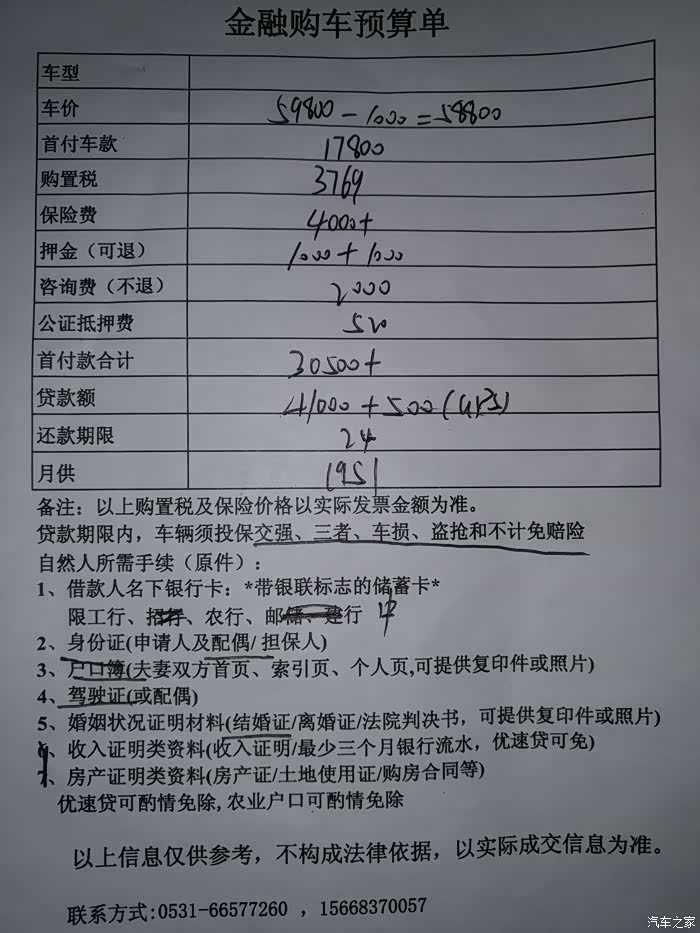 金融购车预算单
车型
车价 59800-1000=58800
首付车款 17800
购置税 3769
保险费 4000+
押金（可退） 1000+1000
咨询费（不退） 2000
公证抵押费 520
首付款合计 30500+
贷款额 41000+500(GPS)
还款期限 24
月供 1951
备注：以上购置税及保险价格以实际发票金额为准。
贷款期限内，车辆须投保交强、三者、车损、盗抢和不计免赔险
自然人所需手续（原件）：
1、借款人名下银行卡：*带银联标志的储蓄卡*
限工行、招行、农行、邮储、建行 中
2、身份证(申请人及配偶/担保人)
3、户口簿(夫妻双方首页、索引页、个人页,可提供复印件或照片)
4、驾驶证(或配偶)
5、婚姻状况证明材料(结婚证/离婚证/法院判决书，可提供复印件或照片)
6、收入证明类资料(收入证明/最少三个月银行流水，优速贷可免)
7、房产证明类资料(房产证/土地使用证/购房合同等)
优速贷可酌情免除,农业户口可酌情免除
以上信息仅供参考，不构成法律依据，以实际成交信息为准。
联系方式:0531-66577260 ，15668370057
汽车之家